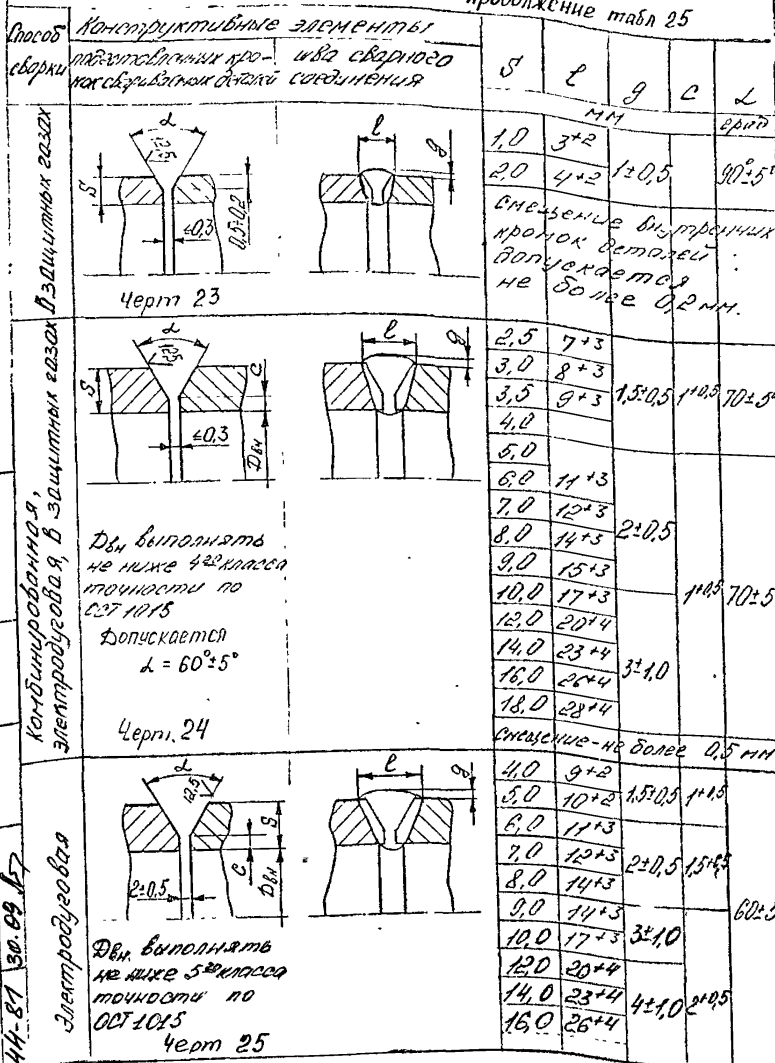 Продолжение табл 25
Способ сварки
Конструктивные элементы
подготовленных кро-
мок свариваемых деталей
шва сварного
соединения
S
l
g
c
α
мм
град
В защитных газах
α
12,5
S
≤0,3
0,5±0,2
l
g
Черт 23
1,0 3+2
2,0 4+2 1±0,5 90°±5°
Смещение внутренних
кромок деталей
допускается
не более 0,2 мм.
Комбинированная,
электродуговая, в защитных газах
α
12,5
S
c
≤0,3
Dвн
l
g
Dвн выполнять
не ниже 4го класса
точности по
ОСТ 1015
Допускается
α = 60°±5°
Черт. 24
2,5 7+3
3,0 8+3
3,5 9+3 1,5±0,5 1+0,5 70±5°
4,0
5,0
6,0 11+3
7,0 12+3
8,0 14+3 2±0,5
9,0 15+3
10,0 17+3 1+0,5 70±5
12,0 20+4
14,0 23+4
16,0 26+4 3±1,0
18,0 28+4
Смещение-не более 0,5 мм
Электродуговая
α
12,5
S
c
2±0,5
Dвн
l
g
Dвн. выполнять
не ниже 5го класса
точности по
ОСТ 1015
Черт 25
4,0 9+2
5,0 10+2 1,5±0,5 1+0,5
6,0 11+3
7,0 12+3 2±0,5 1,5+0,5
8,0 14+3
9,0 14+3 60±5
10,0 17+3 3±1,0
12,0 20+4
14,0 23+4 4±1,0 2+0,5
16,0 26+4
44-81 30.09